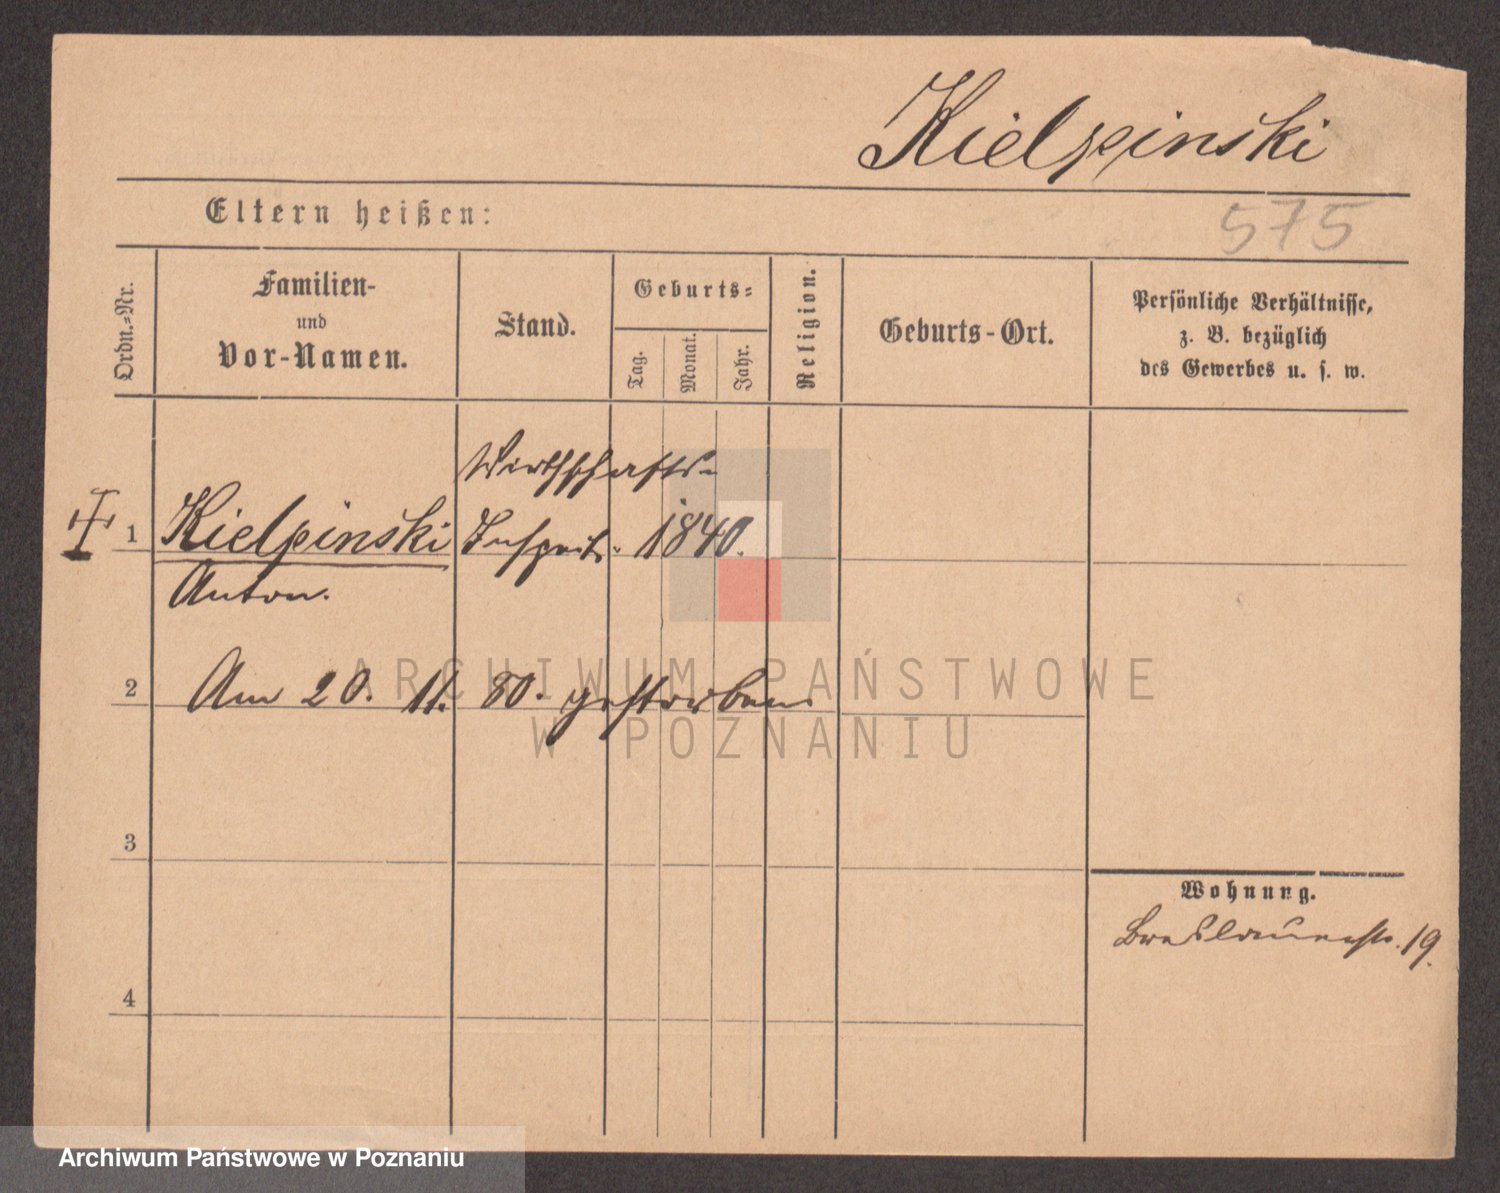 Kielpinski
575
Eltern heißen:
Ordn.-Nr.
Familien-
und
Vor-Namen.
Stand.
Geburts-
Tag.
Monat.
Jahr.
Religion.
Geburts-Ort.
Persönliche Verhältnisse,
z. B. bezüglich
des Gewerbes u. s. w.
Wirthschafts-
1 Kielpinski Inspect. 1840.
Anton.
2 Am 20. 11. 80. gestorben
3
Wohnung.
Breslauerstr. 19.
4
ARCHIWUM PAŃSTWOWE
W POZNANIU
Archiwum Państwowe w Poznaniu